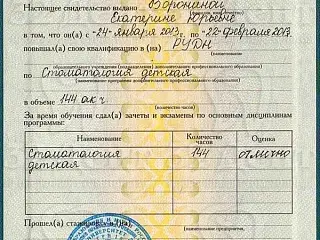 Настоящее свидетельство выдано Ворониной
Екатерине Юрьевне
в том, что он(а) с «24» января 2013 г. по «22» февраля 2013 г.
повышал(а) свою квалификацию в (на) РУДН
(наименование
образовательного учреждения (подразделения) дополнительного профессионального образования)
по Стоматология детская
(наименование программы дополнительного профессионального образования)
в объеме 144 ак. ч
(количество часов)
За время обучения сдал(а) зачеты и экзамены по основным дисциплинам
программы:
Наименование Количество часов Оценка
Стоматология детская 144 отлично
Прошел(а) стажировку в (на)
(наименование предприятия,